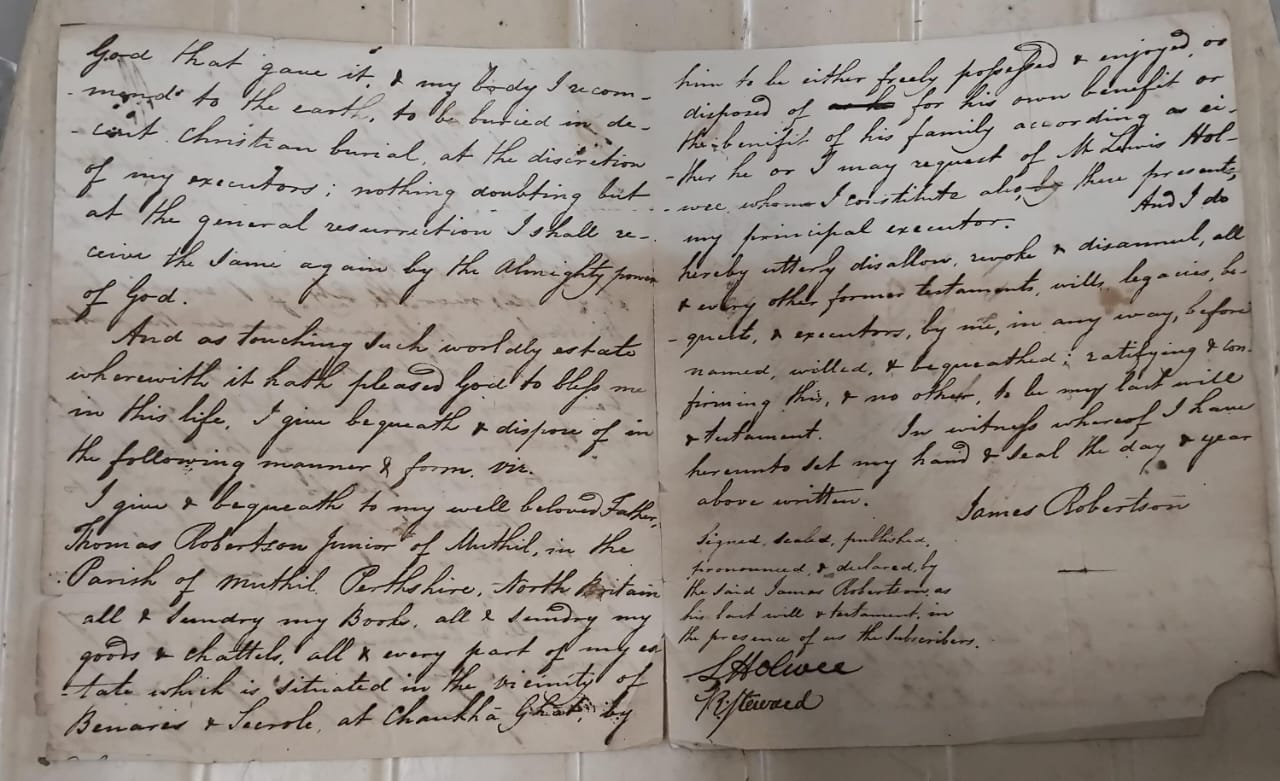 God that gave it, & my body I recom-
-mend to the earth, to be buried in de-
-cent Christian burial, at the discretion
of my executors; nothing doubting but
at the general resurrection I shall re-
ceive the same again by the Almighty power
of God.
And as touching such worldly estate
wherewith it hath pleased God to bless me
in this life, I give bequeath & dispose of in
the following manner & form. viz.
I give & bequeath to my well beloved Father,
Thomas Robertson Junior of Muthil, in the
Parish of Muthil, Perthshire, North Britain
all & sundry my Books, all & sundry my
goods & chattels, all & every part of my es
-tate which is situated in the vicinity of
Benares & Secrole, at Chaukhā Ghat, by
him to be either freely possessed & enjoyed, or
disposed of for his own benefit or
the benifit of his family according as ei-
-ther he or I may request of Mr Lewis Hol-
-wee whom I constitute also, by these presents,
my principal executor. And I do
hereby utterly disallow, revoke & disannul, all
& every other former testaments, wills, legacies, be-
-quests, & executors, by me, in any way, before
named, willed, & bequeathed; ratifying & con-
firming this, & no other, to be my last will
& testament. In witness whereof I have
hereunto set my hand & seal the day & year
above written.
James Robertson
Signed, sealed, published,
pronounced, & declared, by
the said James Robertson, as
his last will & testament, in
the presence of us the subscribers.
L Holwee
R. Steward